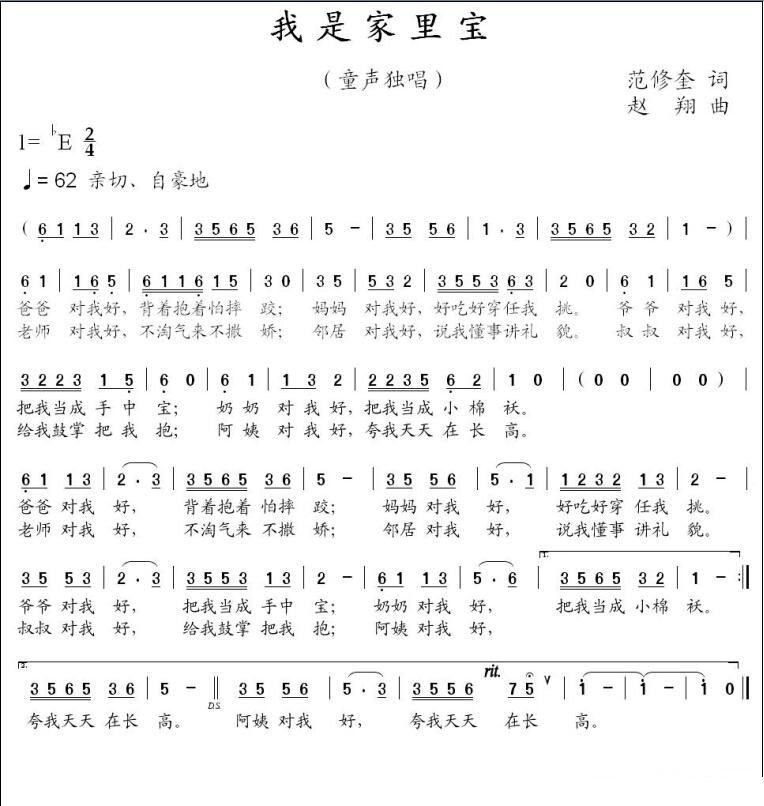 我是家里宝
（童声独唱）
范修奎 词
赵 翔 曲
1= ♭E 2/4
♩= 62 亲切、自豪地
( 6 1 1 3 | 2 · 3 | 3 5 6 5 3 6 | 5 - | 3 5 5 6 | 1 · 3 | 3 5 6 5 3 2 | 1 - ) |
6 1 | 1 6 5 | 6 1 1 6 1 5 | 3 0 | 3 5 | 5 3 2 | 3 5 5 3 6 3 | 2 0 | 6 1 | 1 6 5 |
爸爸 对我好，背着抱着怕摔 跤； 妈妈 对我好，好吃好穿任我 挑。 爷爷 对我好，
老师 对我好，不淘气来不撒 娇； 邻居 对我好，说我懂事讲礼 貌。 叔叔 对我好，
3 2 2 3 1 5 | 6 0 | 6 1 | 1 3 2 | 2 2 3 5 6 2 | 1 0 | ( 0 0 | 0 0 ) |
把我当成 手中 宝； 奶奶 对我好，把我当成 小棉 袄。
给我鼓掌 把我 抱； 阿姨 对我好，夸我天天 在长 高。
6 1 1 3 | 2 · 3 | 3 5 6 5 3 6 | 5 - | 3 5 5 6 | 5 · 1 | 1 2 3 2 1 3 | 2 - |
爸爸 对我 好， 背着抱着 怕摔 跤； 妈妈 对我 好， 好吃好穿 任我 挑。
老师 对我 好， 不淘气来 不撒 娇； 邻居 对我 好， 说我懂事 讲礼 貌。
1.
3 5 5 3 | 2 · 3 | 3 5 5 3 1 3 | 2 - | 6 1 1 3 | 5 · 6 | 3 5 6 5 3 2 | 1 - :‖
爷爷 对我 好， 把我当成 手中 宝； 奶奶 对我 好， 把我当成 小棉 袄。
叔叔 对我 好， 给我鼓掌 把我 抱； 阿姨 对我 好，
2.
rit.
3 5 6 5 3 6 | 5 - ‖ 3 5 5 6 | 5 · 3 | 3 5 5 6 7 5 ∨ | 1 - | 1 - | 1 0 ‖
D.S.
夸我天天 在长 高。 阿姨 对我 好， 夸我天天 在长 高。